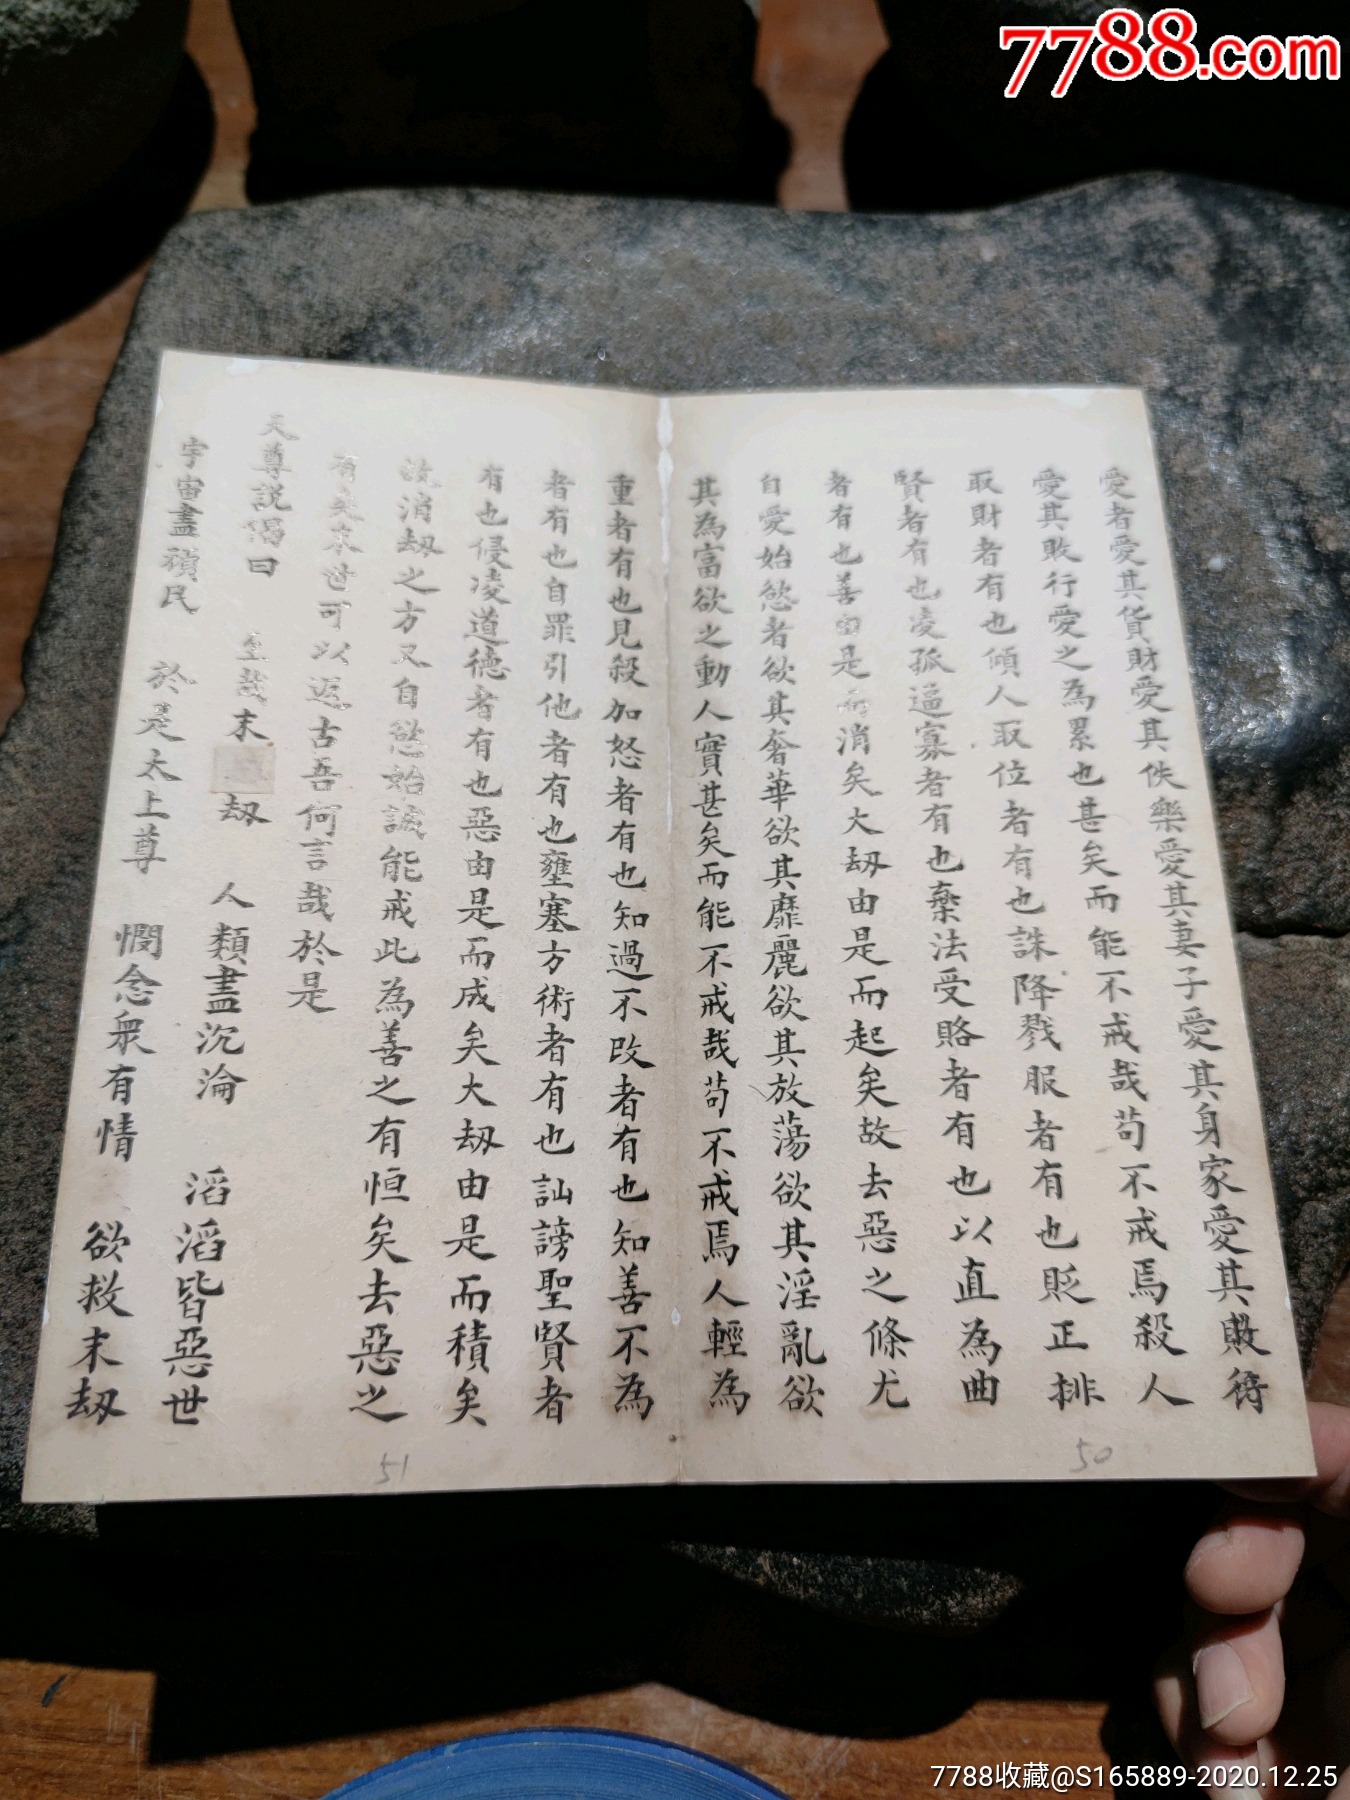 7788.com
愛者愛其貨財愛其佚樂愛其妻子愛其身家愛其敗待
愛其敗行愛之為累也甚矣而能不戒哉苟不戒焉殺人
取財者有也傾人取位者有也誅降戮服者有也貶正排
賢者有也凌孤逼寡者有也棄法受賂者有也以直為曲
者有也善由是而消矣大劫由是而起矣故去惡之條尤
自愛始慾者欲其奢華欲其靡麗欲其放蕩欲其淫亂欲
其為富欲之動人實甚矣而能不戒哉苟不戒焉人輕為
重者有也見殺加怒者有也知過不改者有也知善不為
者有也自罪引他者有也壅塞方術者有也訕謗聖賢者
有也侵凌道德者有也惡由是而成矣大劫由是而積矣
消劫之方又自慾始誠能戒此為善之有恒矣去惡之
有矣末世可以返古吾何言哉於是
天尊説偈曰
至哉末劫 人類盡沉淪 滔滔皆惡世
宇宙盡頑民 於是太上尊 憫念衆有情 欲救末劫
50
51
7788收藏@S165889-2020.12.25